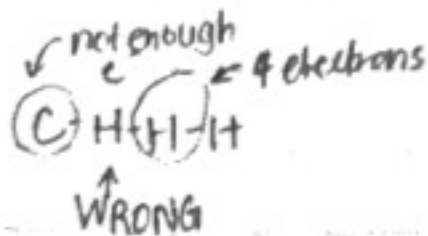 not enough
e
4 electrons
C-H-H-H
WRONG